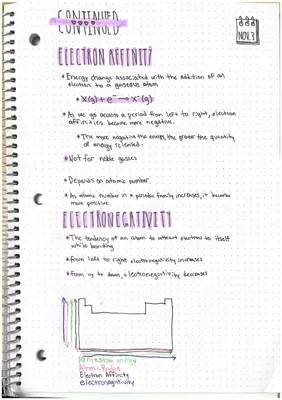 CONTINUED
NOV. 3
ELECTRON AFFINITY
*Energy change associated with the addition of an
electron to a gaseous atom
*X(g) + e⁻ → X⁻(g)
*As we go across a period from left to right, electron
affinities become more negative.
*The more negative the energy, the greater the quantity
of energy released.
*Not for noble gasses
*Depends on atomic number
*As atomic number in a periodic family increases, it becomes
more positive.
ELECTRONEGATIVITY
*The tendency of an atom to attract electrons to itself
while bonding
*From left to right electronegativity increases
*From up to down, electronegativity decreases
ionization energy
Atomic Radius
Electron Affinity
electronegativity